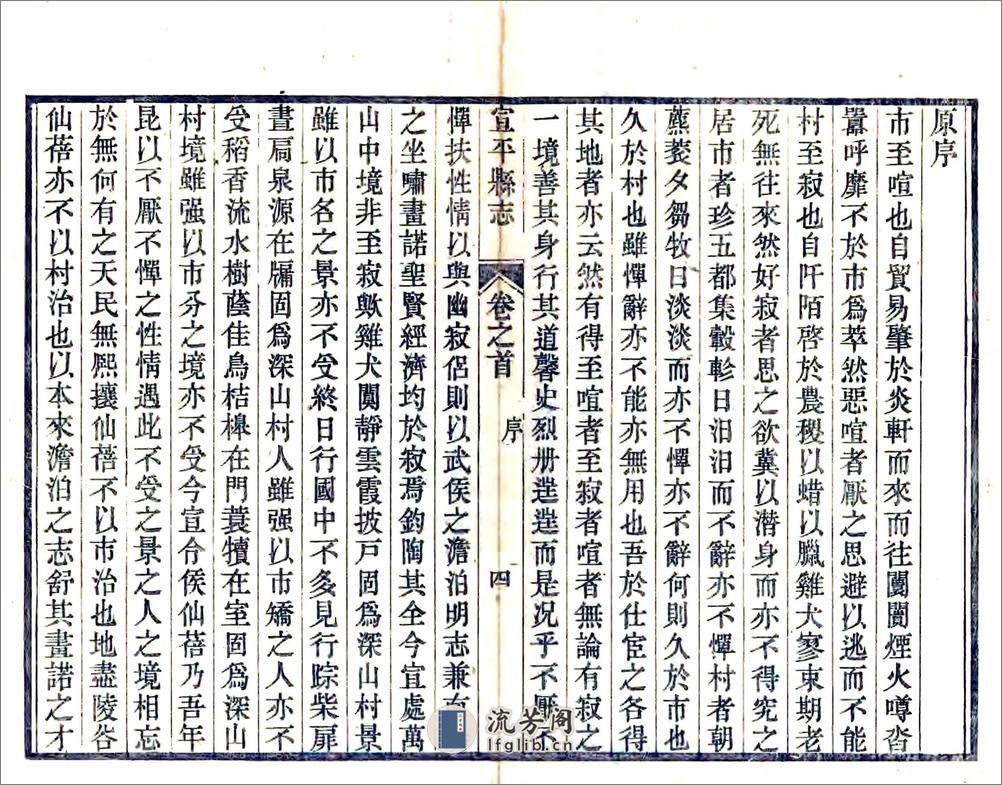 原序
市至喧也自貿易肇於炎軒而來而往闤闠煙火噂沓
囂呼靡不於市爲萃然惡喧者厭之思避以逃而不能
村至寂也自阡陌啓於農稷以蜡以臘雞犬寥柬期老
死無往來然好寂者思之欲冀以潛身而亦不得究之
居市者珍五都集轂軫日汨汨而不辭亦不憚村者朝
蕉蓌夕芻牧日淡淡而亦不憚亦不辭何則久於市也
久於村也雖憚辭亦不能亦無用也吾於仕宦之各得
其地者亦云然有得至喧者至寂者喧者無論有寂之
一境善其身行其道馨史烈册逴逴而是况乎不厭不
宣平縣志
卷之首
序
四
憚扶性情以與幽寂侶則以武侯之澹泊明志兼
之坐嘯畫諾聖賢經濟均於寂焉鈞陶其全今宣處萬
山中境非至寂歟雞犬闃靜雲霞披戸固爲深山村景
雖以市名之景亦不受終日行國中不多見行踪柴扉
晝扃泉源在牖固爲深山村人雖强以市矯之人亦不
受稻香流水樹蔭佳鳥桔槔在門蓑犢在室固爲深山
村境雖强以市夯之境亦不受今宣令侯仙蓓乃吾年
昆以不厭不憚之性情遇此不受之景之人之境相忘
於無何有之天民無熙攘仙蓓不以市治也地盡陵谷
仙蓓亦不以村治也以本來澹泊之志舒其畫諾之才
流芳阁
lfglib.cn